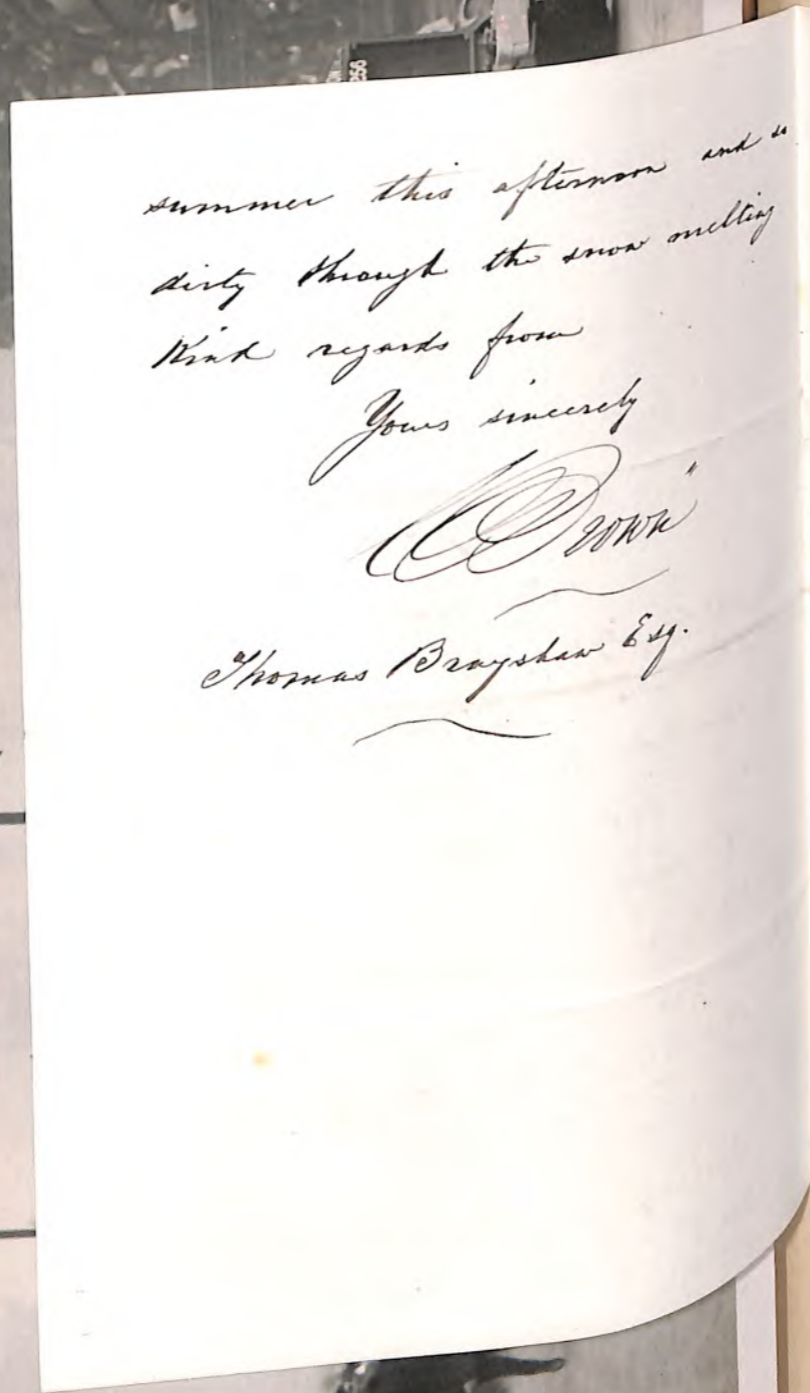 summer this afternoon and so
dirty through the snow melting
Kind regards from
Yours sincerely
Brown
Thomas Brayshaw Esq.